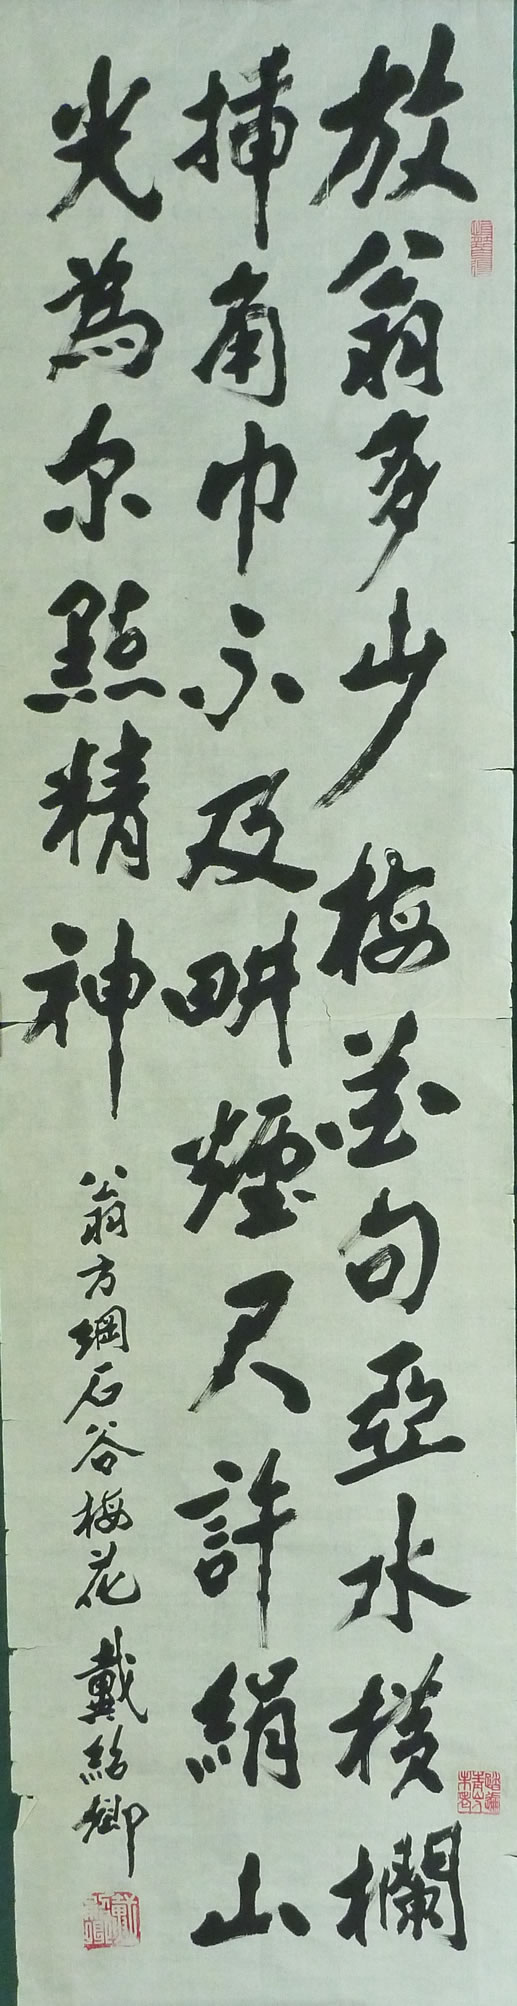 放翁多少梅花句亞水橫欄
插角巾不及畊煙尺許絹山
光為尔點精神
翁方綱石谷梅花 戴紹卿